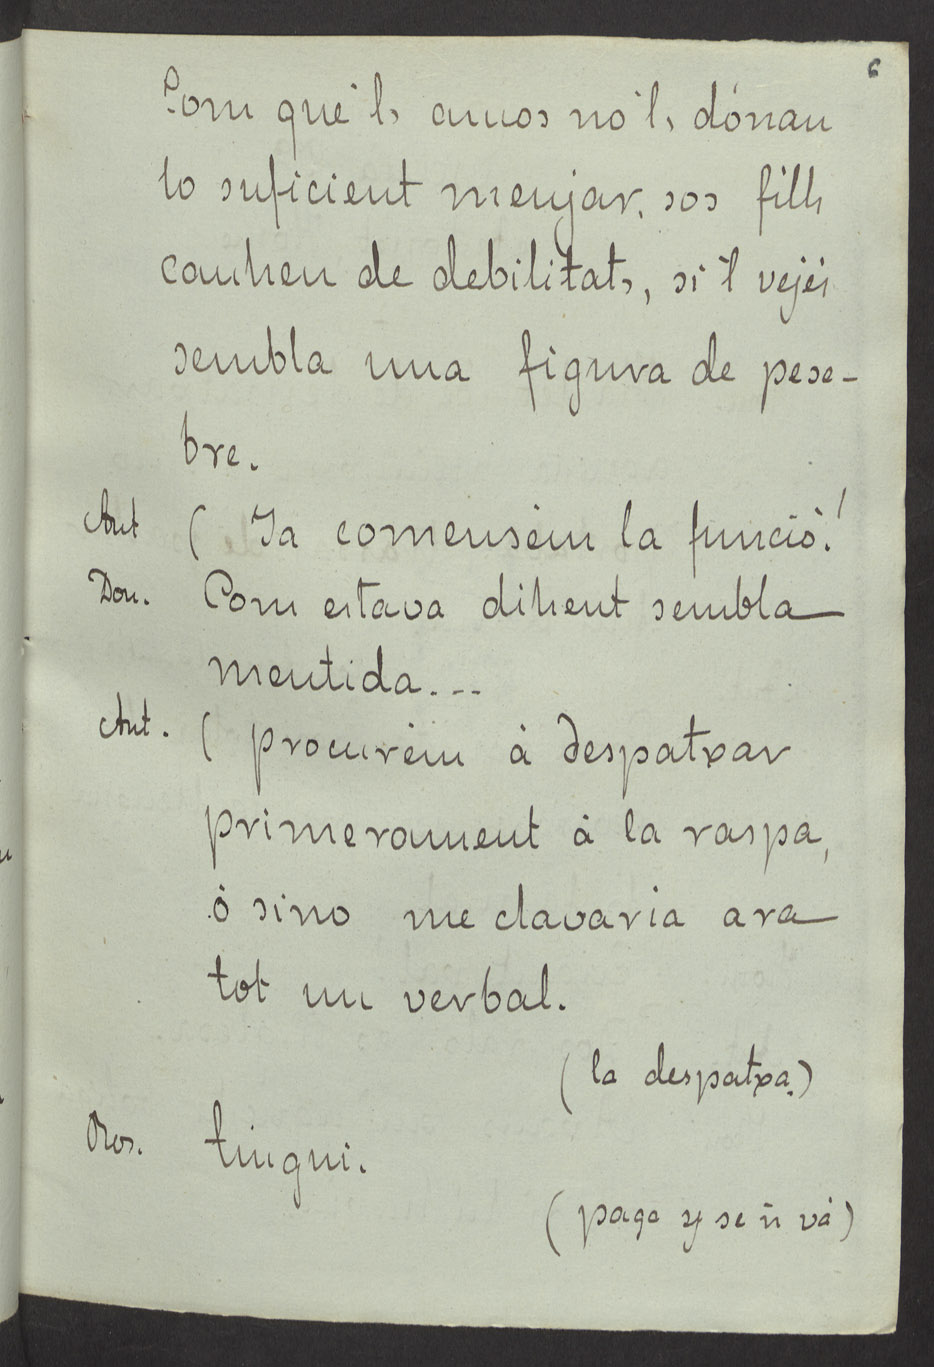 6
Com que'ls amos no'ls dónan
lo suficient menjar, sos fills
cauhen de debilitats, si'l vejés
sembla una figura de pese-
bre.
Ant ( Ja comensèm la funció!
Don. Com estava dihent sembla
mentida...
Ant. ( procurèm á despatxar
primerament á la raspa,
ó sino me clavaria ara
tot un verbal.
(la despatxa.)
Ros. tingui.
(paga y se ñ vá)